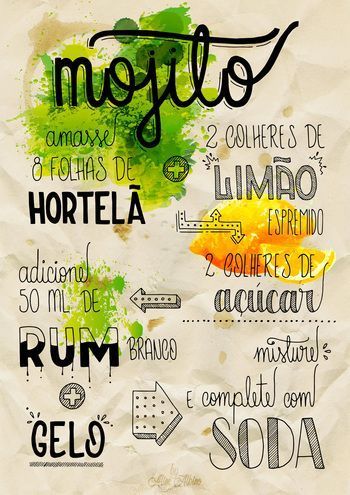 mojito
amasse
8 FOLHAS DE
HORTELÃ
2 COLHERES DE
LIMÃO
ESPREMIDO
2 COLHERES DE
açúcar
adicione
50 ML DE
RUM BRANCO
GELO
misture
E complete com
SODA
by